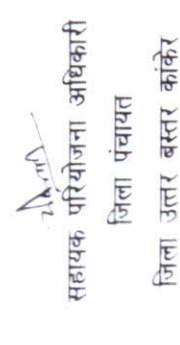 सहायक परियोजना अधिकारी
जिला पंचायत
जिला उत्तर बस्तर कांकेर